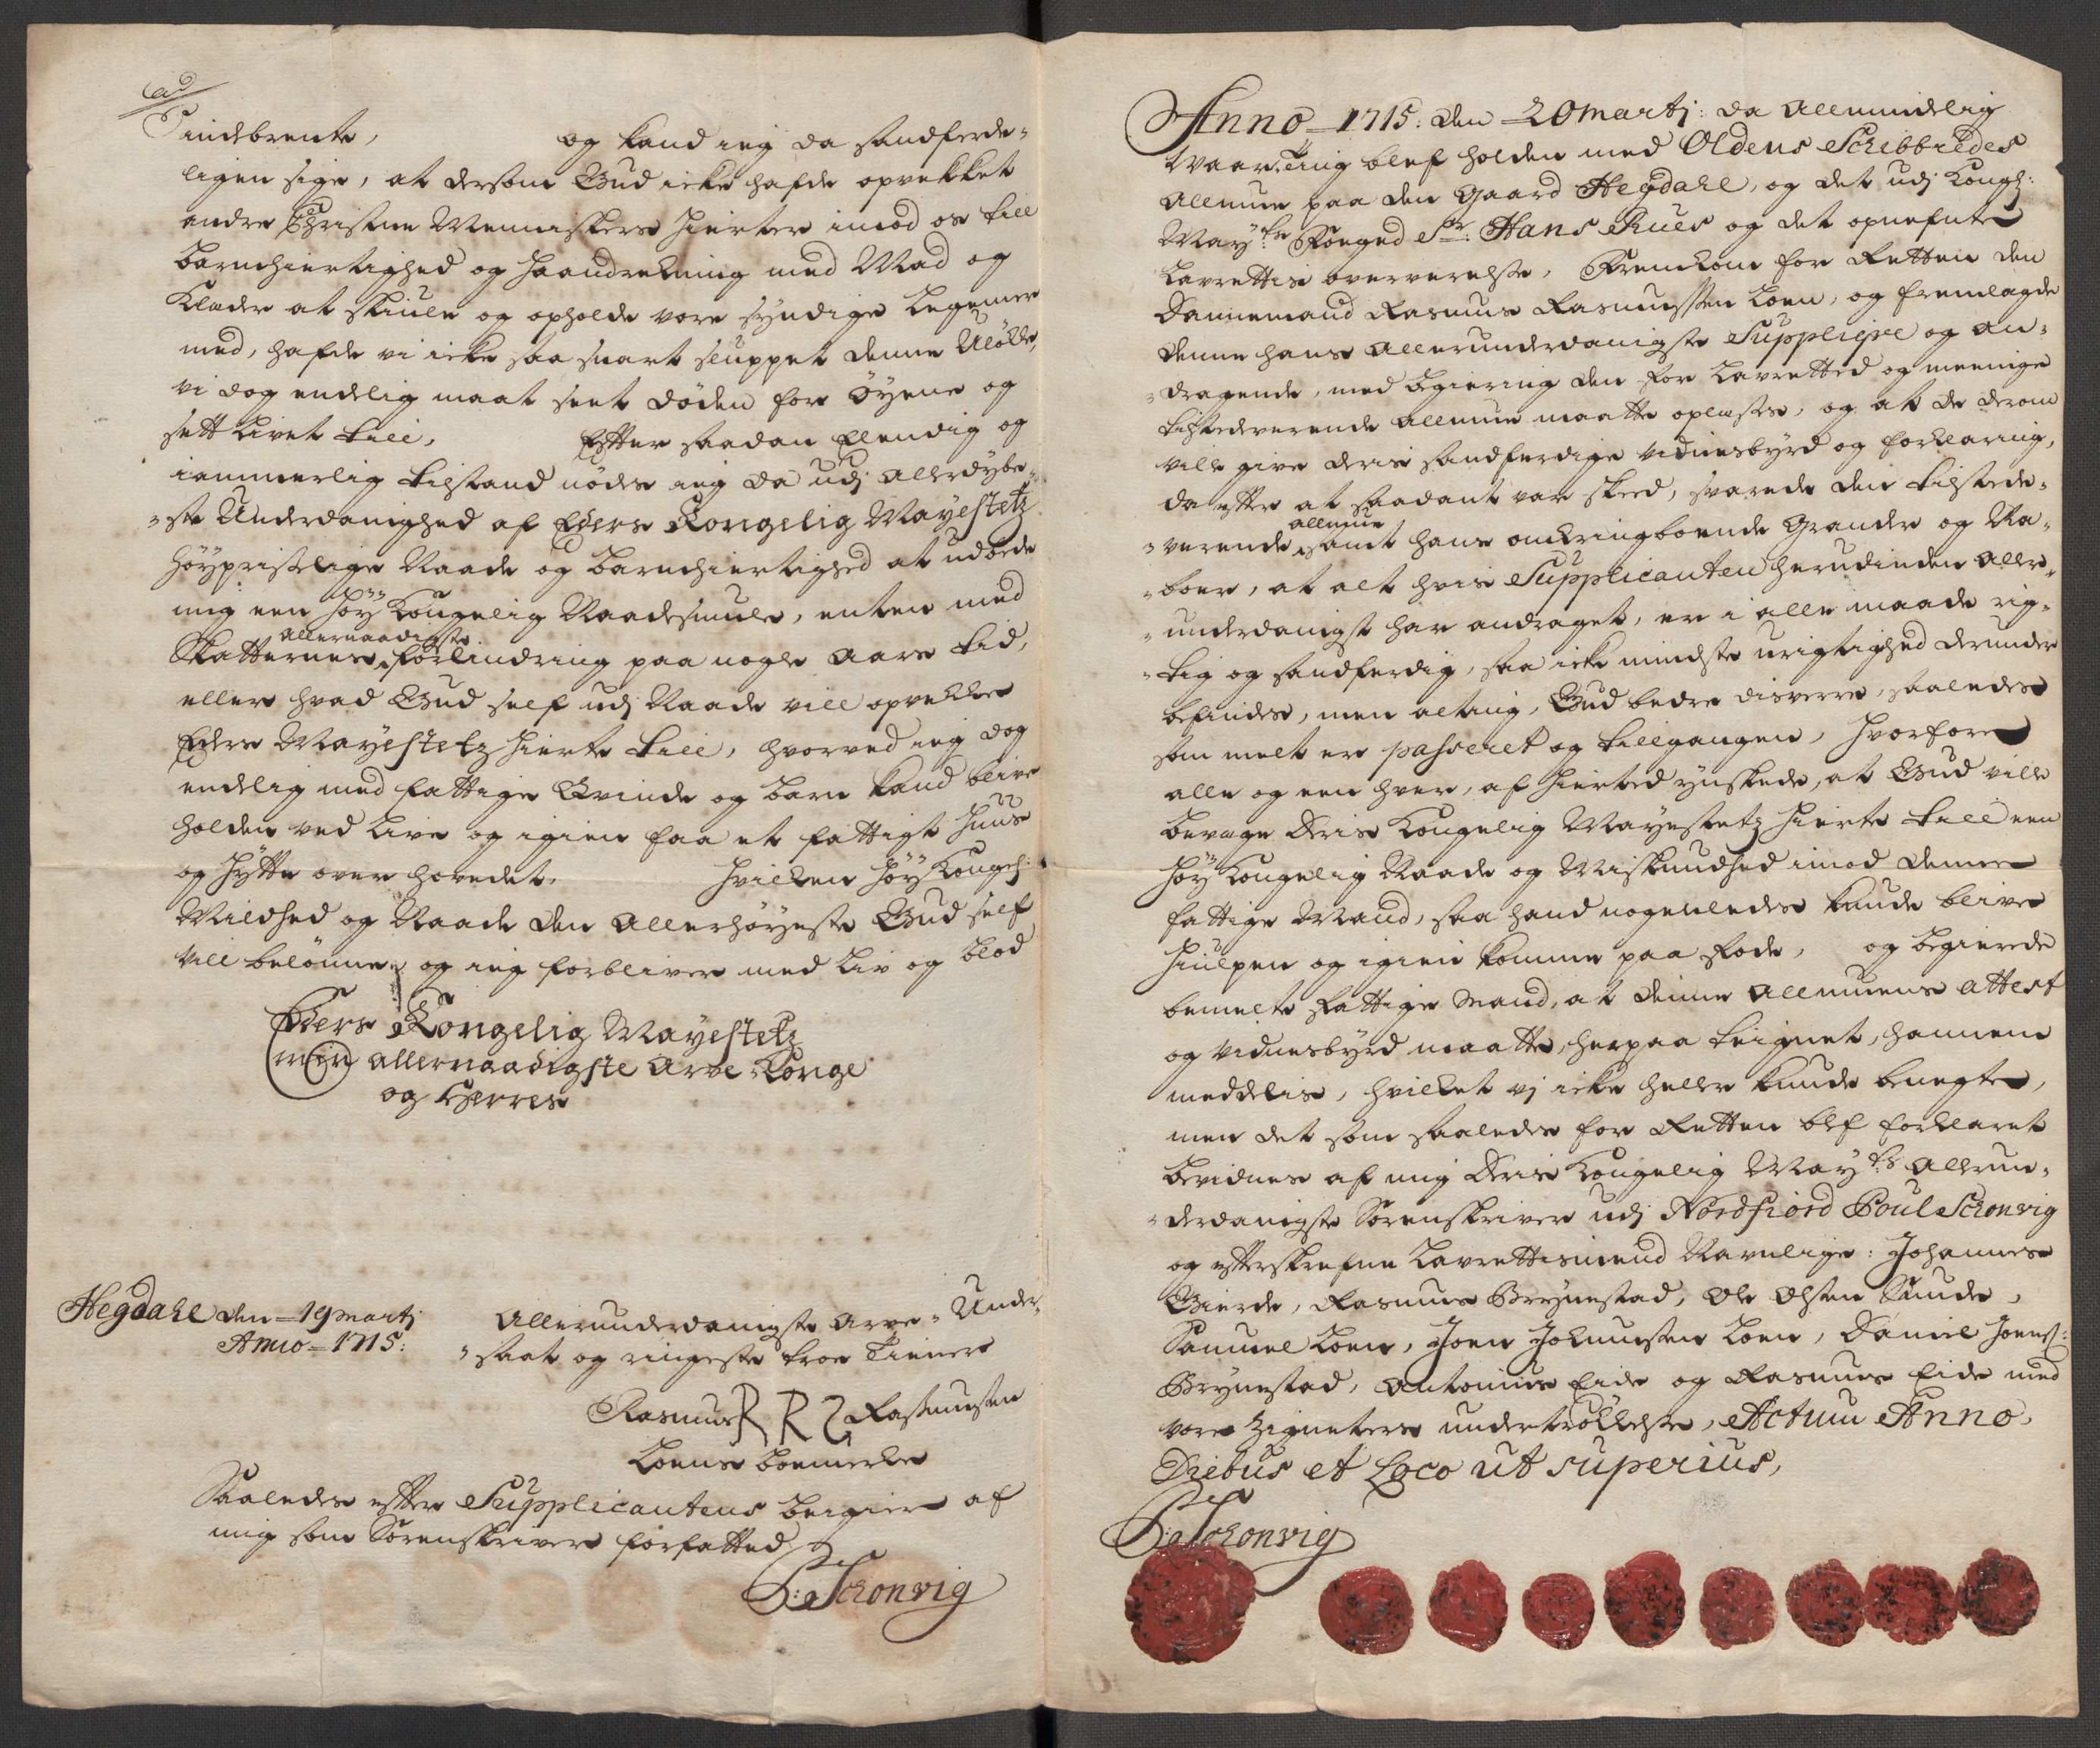 ad
indebrente, og kand ieg da sandferde-
ligen sige, at dersom Gud icke hafde opvekket
andre Christne Menniskers hierter imod os till
barmhiertighed og Haandrekning med Mad og
Klæder at skiule og opholde vore syndige Legemer
med, hafde vi icke saa snart sluppet denne Uløkke,
vi dog endelig maat seet døden for øyene og
sett livet till, Efter saadan Elendig og
iammerlig tilstand nødes ieg da udj allerdybe-
-ste Underdanighed af Eders Kongelig Mayestetz
høypriselige Naade og barmhiertighed at udbede
mig een høy Kongelig Naadesmule, enten med
allernaadigste
Skatternes forlindring paa nogle aars tid,
eller hvad Gud self udj Naade vill opvekke
Eders Mayestetz hierte till, hvorved ieg dog
endelig med fattige Qvinde og barn kand blive
holden ved live og igien faa et fattigt huus
og hytte over hovedet. Hvilken høy Kongel:
Mildhed og Naade den Allerhøyeste Gud self
vill belønne, og ieg forbliver med liv og blod
Eders Kongelig Mayestetz
min allernaadigste Arve Konge
og Herres
Hegdahl den 19 martj
Anno 1715:
Allerunderdanigste Arve-Under-
-saat og ringeste troe Tienere
Rasmus R R S Rasmussen
Loens boemerke
Saaledes efter Supplicantens begier af
mig som Sorenskriver forfatted
P: Schonvig
Anno 1715: den 20 martj: da Allmindelig
Waar-Ting blef holden med Oldens Schibbredes
Allmue paa den Gaard Hegdahl, og det udj Kongl:
May:ts Foged Sr: Hans Rues og det opnefnte
Laurettis oververelse, Fremkom for Retten den
Dannemand Rasmus Rasmussen Loen, og fremlagde
denne hans allerunderdanigste Suppliqve og an-
-dragende, med begiering den for Lavretted og meenige
tilstedeverende allmue maatte oplæses, og at de derom
ville give deris sandferdige vidnesbyrd og forklaring,
da efter at saadant var skeed, svarede den tilstede-
allmue
-verende samt hans omkringboende Grander og Na-
-boer, at alt hvis Supplicanten herudinden aller-
-underdanigst har andraget, er i alle maade rig-
-tig og sandferdig, saa icke mindste urigtighed derunder
befindes, men alting, Gud bedre disverre, saaledes
som melt er passeret og tillgangen, Hvorfore
alle og een hver, af hierted ynskede, at Gud ville
bevæge Deris Kongelig Mayestetz hierte till een
høy Kongelig Naade og Miskundhed imod denne
fattige Mand, saa hand nogenledes kunde blive
hiulpen og igien komme paa fode, og begierede
bemelte fattige mand, at denne Allmuens attest
og vidnesbyrd maatte, herpaa teignet, hannem
meddelis, hvilket vj icke heller kunde benegte,
men det som saaledes for Retten blef forklaret
bevidnes af mig Deris Kongelig May:ts allerun-
-derdanigste Sorenskriver udj Nordfiord Poul Schonvig
og efterskrefne Lavrettismend Navnlige: Johannes
Gierde, Rasmus Brynestad, Ole Olsen Sunde,
Samuel Loen, Joen Joknusen Loen, Daniel Joens:
Brynestad, Antonius Eide og Rasmus Eide med
vore Zigneters undertrøkkelse, Actum Anno,
Diebus et Loco ut superius,
P: Schonvig